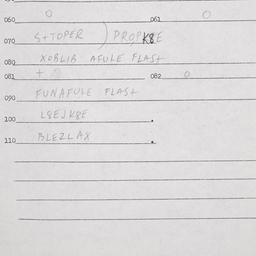 060 O 061 O
070 S+TOPER ) PROPK8E
080 XOBLIB AFULE FLAS+
081 + 082 O
090 FUNAFULE FLAS+
100 L8EJK8E
110 BLEZLAX